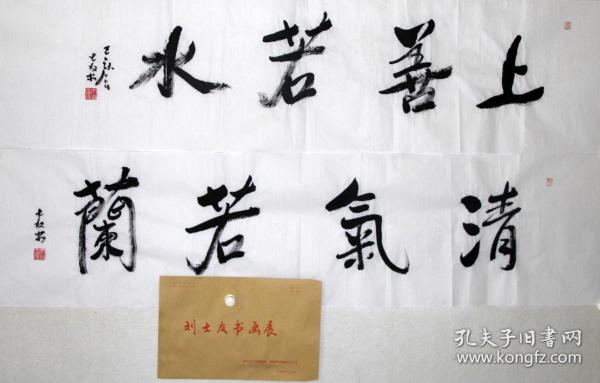 上善若水
清氣若蘭
刘士友书画展
孔夫子旧书网
www.kongfz.com